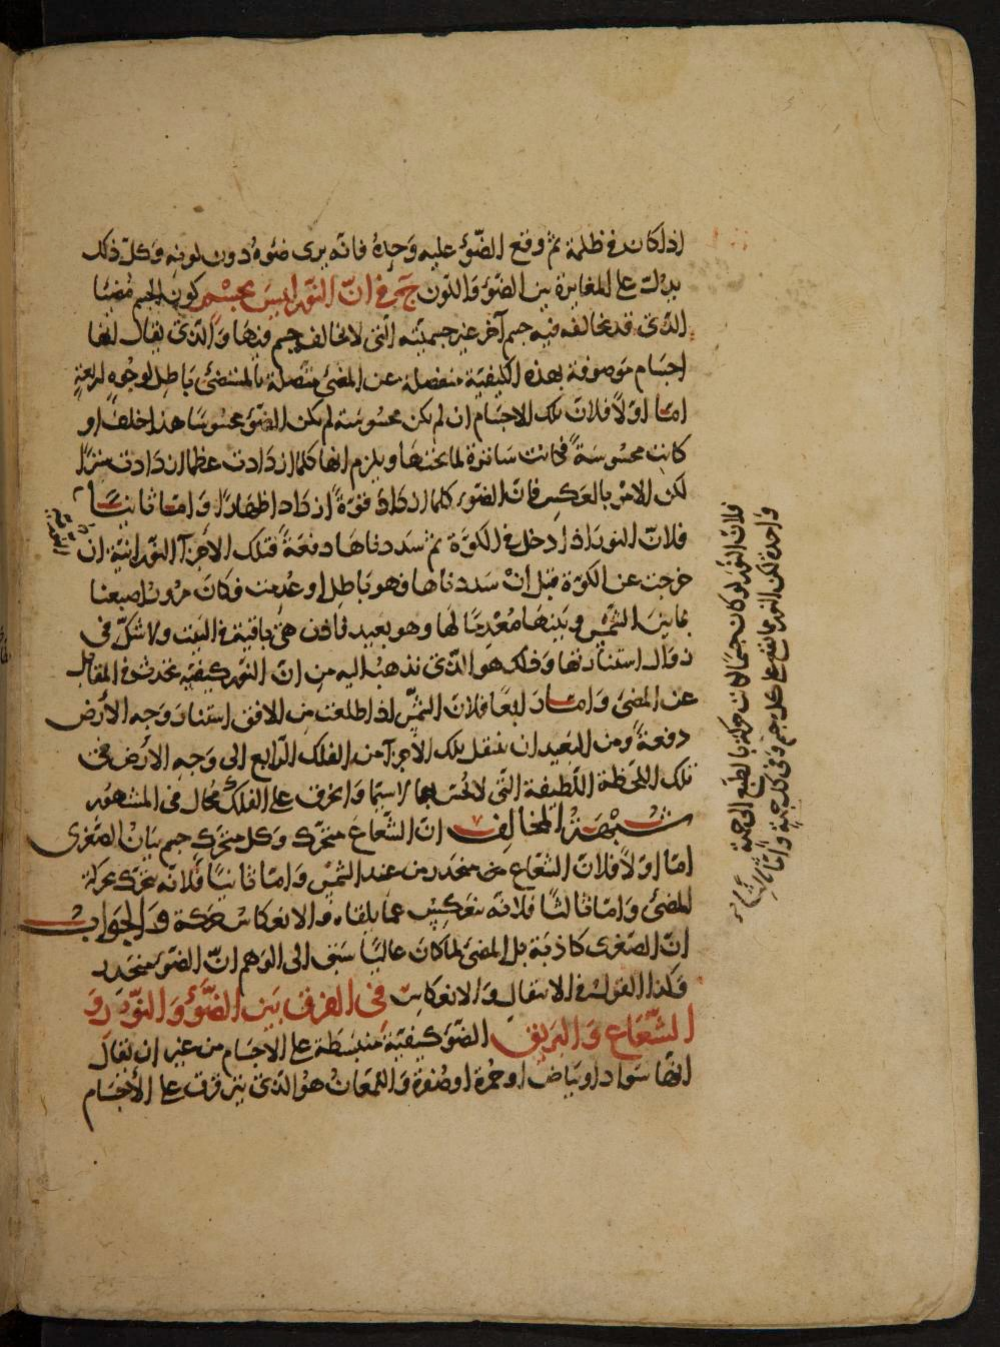 اذا كان في ظلمة ثم وقع الضّوء عليه وحده فانّه يرى ضوءه دون لونه وكلّ ذلك
يدلّ على المغايرة بين الضّوء واللّون ج في انّ النّور ليس بجسم كون الجسم مضيئا
الذّى قد يخالفه فيه جسم آخر غير جسميّته الّتى لا يخالف جسم فيها والذّى يقال انّها
اجسام موصوفة بهذه الكيفيّة منفصلة عن المضئ متّصلة بالمستضئ باطل لوجوه اربعة
امّا اوّلاً فلانّ تلك الاجسام ان لم يكن محسوسة لم يكن الضّوء محسوسًا هذا خلف او
كانت محسوسةً فكانت ساترة لما تحتها ويلزم انّها كلّما ازدادت عظما ازدادت سترًا
لكن الامر بالعكس فانّ الضّوء كلّما ازداد قوّةً ازداد اظهارًا وامّا ثانيًا
فلانّ النور اذا دخل في الكوّة ثم سددناها دفعةً فتلك الاجزآ النّورانيّة ان
خرجت عن الكوّة قبل ان سددناها فهو باطل او عدمت فكان مرور اصبعنا
ما بين الشّمس وبينها معدمًا لها وهو بعيد فاذن هى باقية في البيت ولا شكّ فى
زوال استنارتها وذلك هو الذّى نذهب اليه من انّ النّور كيفيّة تحدث في المقابل
عن المضئ وامّا رابعًا فلانّ الشّمس اذا طلعت من الافق استنار وجه الأرض
دفعةً ومن البعيد ان ينتقل تلك الاجزآ من الفلك الرّابع الى وجه الارض فى
تلك اللّحظة اللّطيفة الّتى لا تحسّ بها لا سيّما والخرق على الفلك محال فى المشهور
شبهة المخالف انّ الشّعاع متحرّك وكل متحرّك جسم بيان الصّغرى
امّا اوّلاً فلانّ الشّعاع منحدر من عند الشّمس وامّا ثانيًا فلانّه يتحرّك بحركة
المضئ وامّا ثالثًا فلانّه ينعكس عما يلقاه والانعكاس حركة والجواب
انّ الصّغرى كاذبة بل المضئ لمّا كان عاليًا سبق الى الوهم انّ الضّوء منحدر
وكذا القول فى الانتقال والانعكاس فى الفرق بين الضّوء والنّور و
الشّعاع والبريق الضّوء كيفيّة منبسطة على الاجسام من غير ان يقال
انّها سواد او بياض او حمرة او صفرة واللّمعان هو الذّى يترقرق على الأجسام
فلانّ النّور لو كان جسمًا لكانت حركته بالطّبع الى جهة
واحدة لكن النّور مما يقع على كل جسم وفى كل جهة وامّا